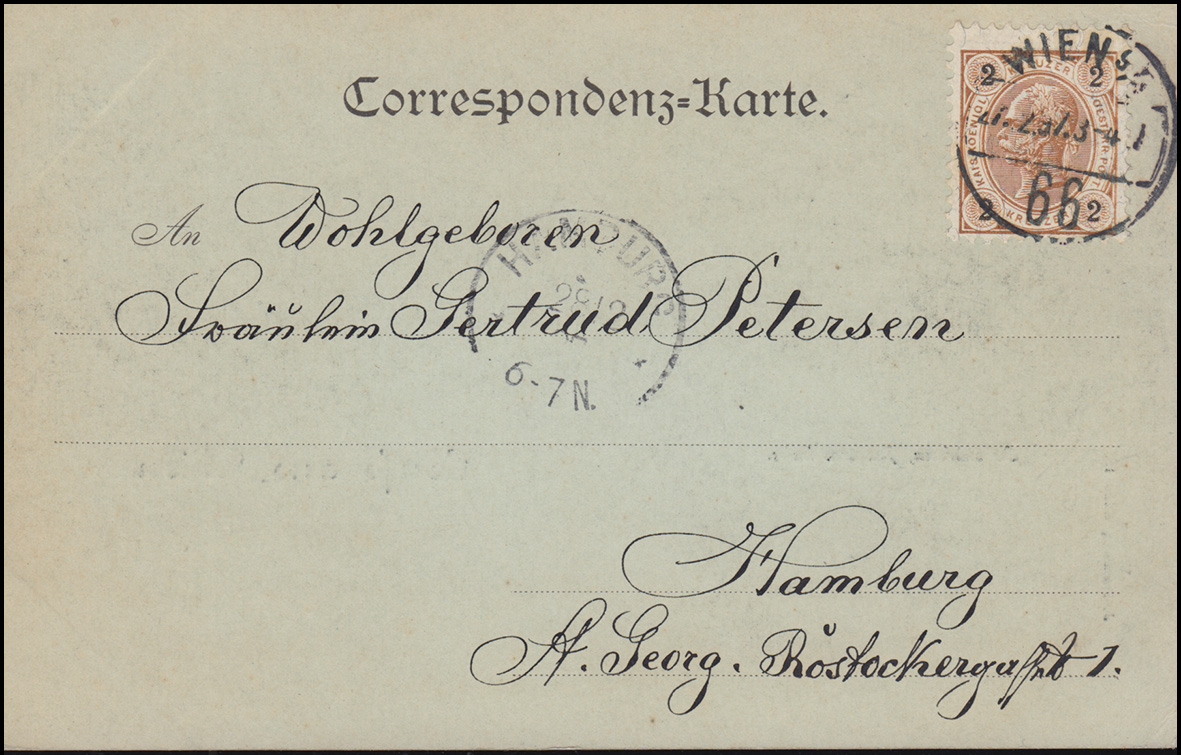 Correspondenz-Karte.
WIEN
2 KREUZER 2
66
2 2
An Wohlgeboren
HAMBURG
Fräulein Gertrud Petersen
6-7N.
Hamburg
St. Georg. Rostockergasse 1.